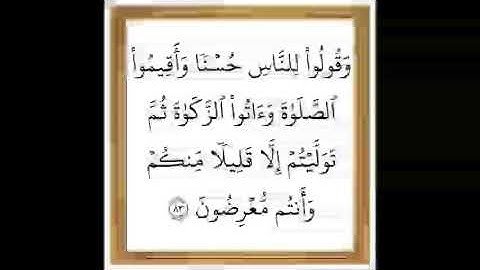 وَقُولُوا۟ لِلنَّاسِ حُسْنًا وَأَقِيمُوا۟
ٱلصَّلَوٰةَ وَءَاتُوا۟ ٱلزَّكَوٰةَ ثُمَّ
تَوَلَّيْتُمْ إِلَّا قَلِيلًا مِّنكُمْ
وَأَنتُم مُّعْرِضُونَ ٨٣